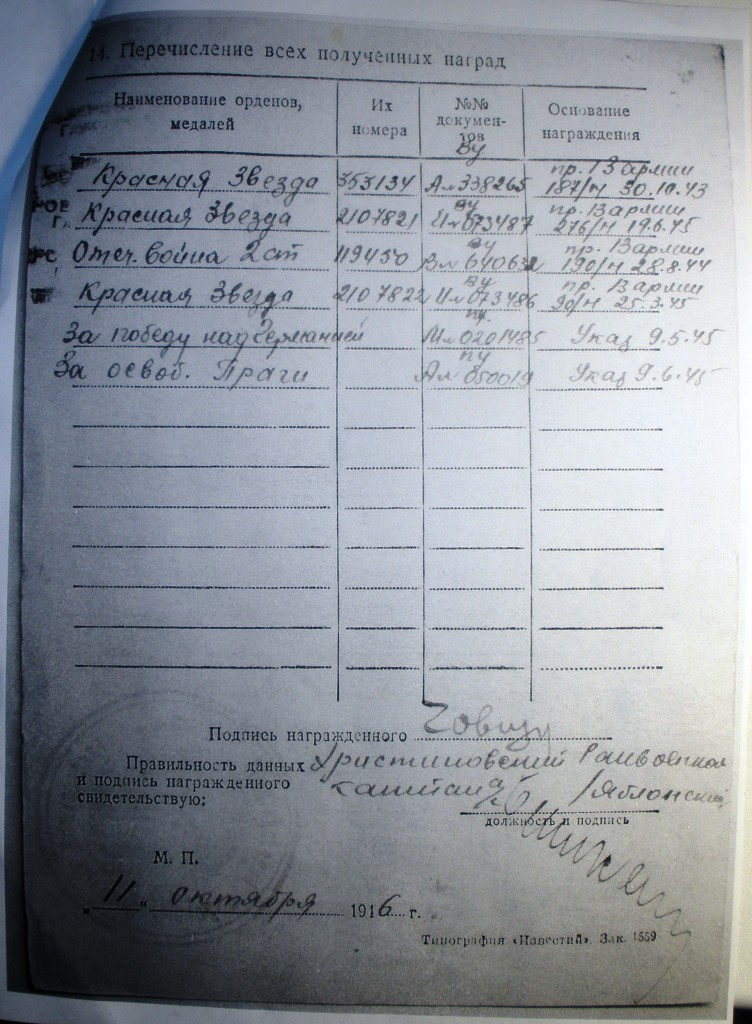 14. Перечисление всех полученных наград
Наименование орденов, медалей
Их номера
№№ документов
Основание награждения
Ву пр. 13 армии
Красная Звезда 353134 Ал 338265 187/н 30.10.43
Ву пр. 13 армии
Красная Звезда 2107821 Ил 073487 276/н 19.6.45
Ву пр. 13 армии
Отеч. война 2 ст 119450 Вл 640632 190/н 28.8.44
Ву пр. 13 армии
Красная Звезда 2107822 Ил 073486 90/н 25.3.45
За победу над Германией Мл 0201485 Указ 9.5.45
пу
За освоб. Праги Ал 050019 Указ 9.6.45
Подпись награжденного
Правильность данных Христиновский Райвоенком
и подпись награжденного капитан /Яблонский
свидетельствую:
должность и подпись
М. П.
„11„ октября 1946 г.
Типография «Известий». Зак. 1559